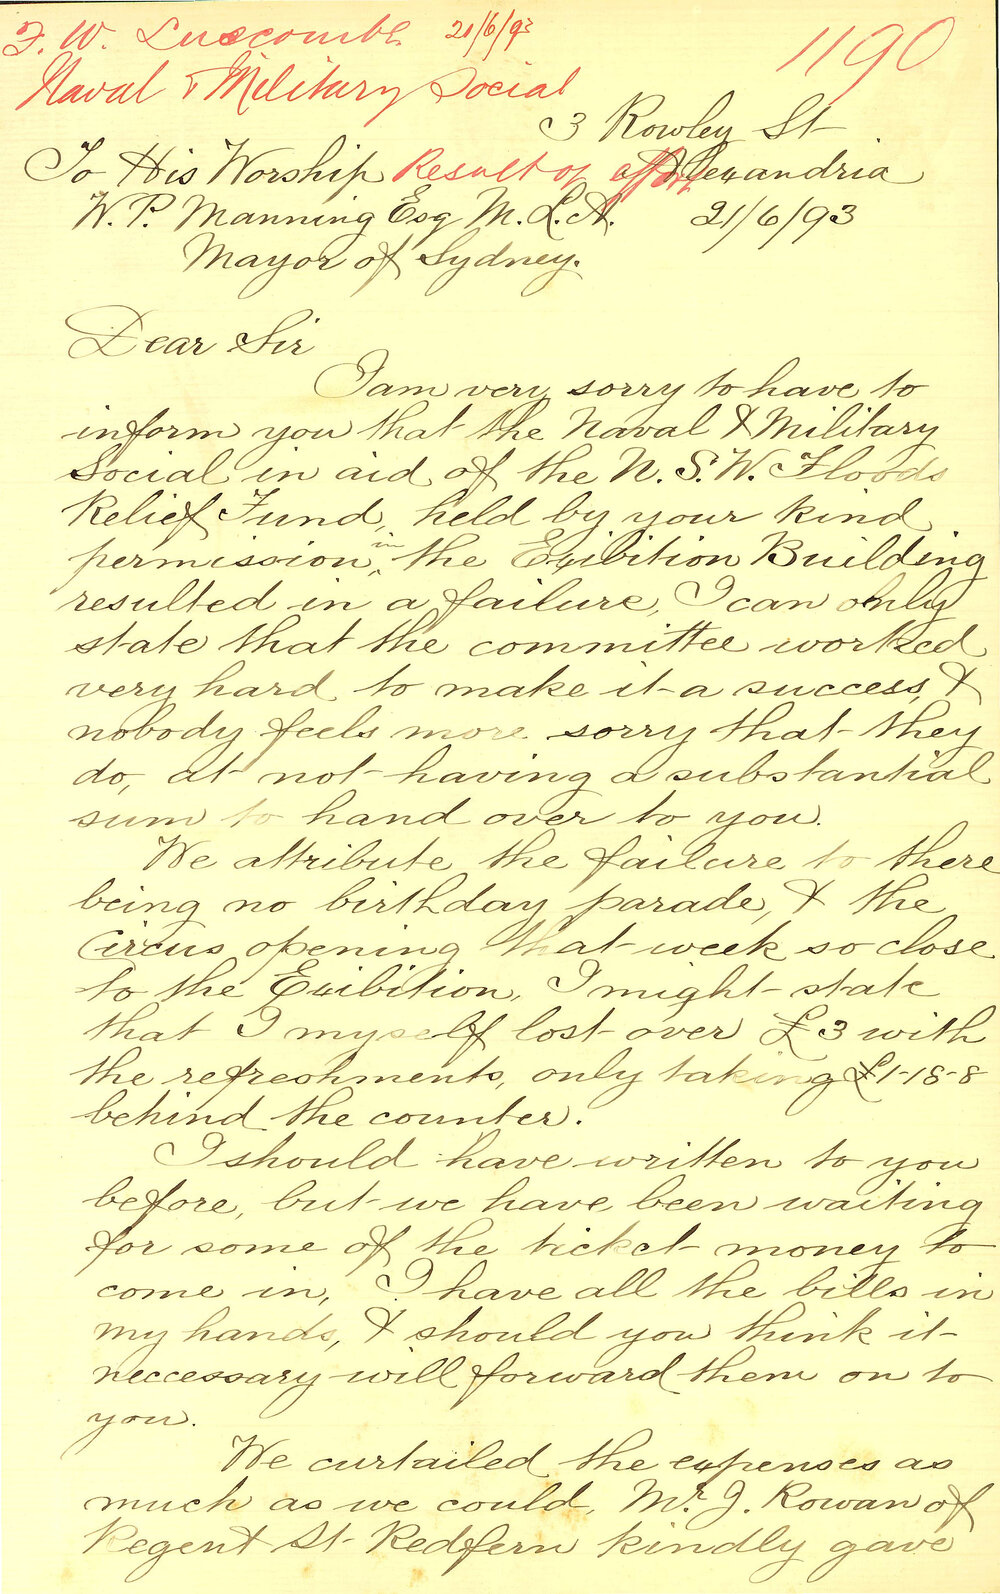 F. W. Luscombe 21/6/93
1190
Naval & Military Social
3 Rowley St
To His Worship Result of effort Alexandria
W. P. Manning Esq M.L.A. 21/6/93
Mayor of Sydney.
Dear Sir
I am very sorry to have to
inform you that the Naval & Military
Social in aid of the N.S.W. Floods
Relief Fund, held by your kind
permission, in the Exibition Building
resulted in a failure, I can only
state that the committee worked
very hard to make it a success, &
nobody feels more sorry that they
do, at not having a substantial
sum to hand over to you.
We attribute the failure to there
being no birthday parade, & the
Circus opening that week so close
to the Exibition, I might state
that I myself lost over £3 with
the refreshments, only taking £1-18-8
behind the counter.
I should have written to you
before, but we have been waiting
for some of the ticket money to
come in, I have all the bills in
my hands, & should you think it
neccessary will forward them on to
you.
We curtailed the expenses as
much as we could, Mr. J. Rowan of
Regent St Redfern kindly gave